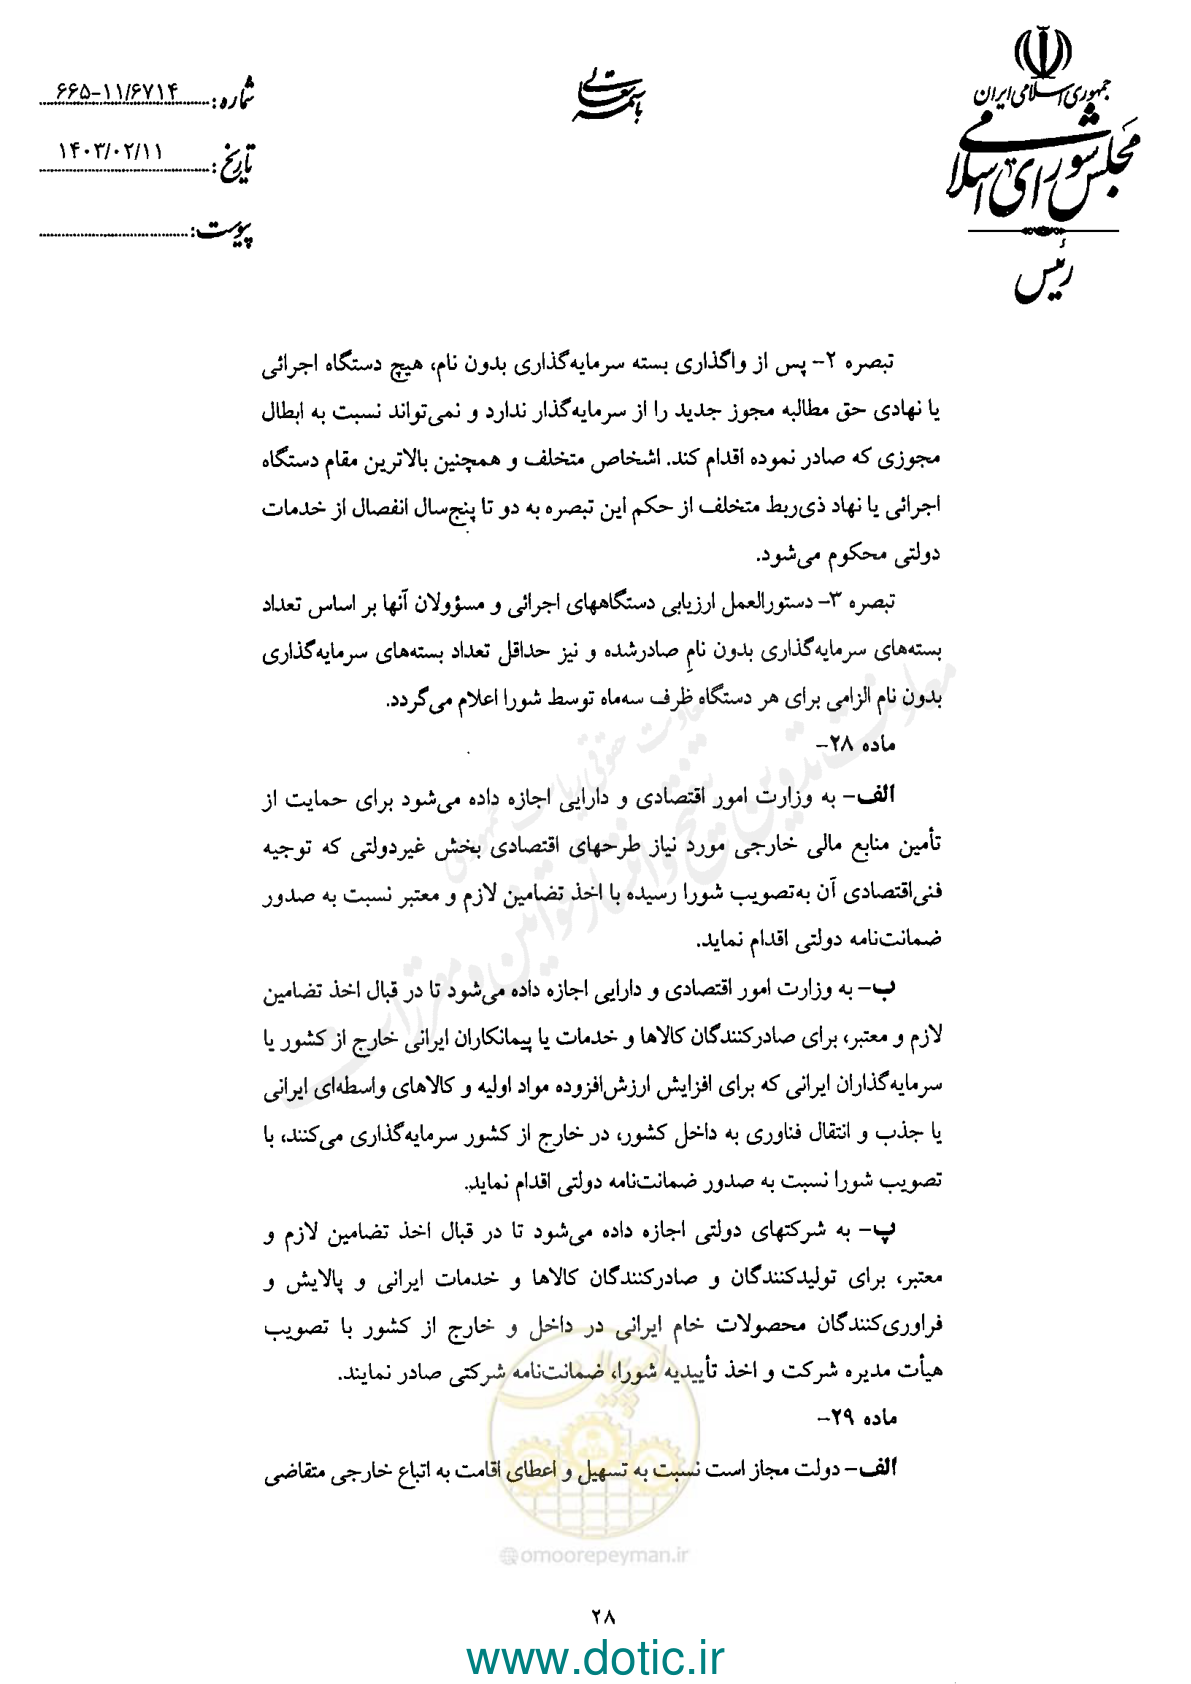 جمهوری اسلامی ایران
مجلس شورای اسلامی
رئیس
باسمه تعالی
شماره: ۶۶۵-۱۱/۶۷۱۴
تاریخ: ۱۴۰۳/۰۲/۱۱
پیوست:
تبصره ۲- پس از واگذاری بسته سرمایه‌گذاری بدون نام، هیچ دستگاه اجرائی
یا نهادی حق مطالبه مجوز جدید را از سرمایه‌گذار ندارد و نمی‌تواند نسبت به ابطال
مجوزی که صادر نموده اقدام کند. اشخاص متخلف و همچنین بالاترین مقام دستگاه
اجرائی یا نهاد ذی‌ربط متخلف از حکم این تبصره به دو تا پنج‌سال انفصال از خدمات
دولتی محکوم می‌شود.
تبصره ۳- دستورالعمل ارزیابی دستگاههای اجرائی و مسؤولان آنها بر اساس تعداد
بسته‌های سرمایه‌گذاری بدون نامِ صادرشده و نیز حداقل تعداد بسته‌های سرمایه‌گذاری
بدون نام الزامی برای هر دستگاه ظرف سه‌ماه توسط شورا اعلام می‌گردد.
ماده ۲۸-
الف- به وزارت امور اقتصادی و دارایی اجازه داده می‌شود برای حمایت از
تأمین منابع مالی خارجی مورد نیاز طرحهای اقتصادی بخش غیردولتی که توجیه
فنی‌اقتصادی آن به‌تصویب شورا رسیده با اخذ تضامین لازم و معتبر نسبت به صدور
ضمانت‌نامه دولتی اقدام نماید.
ب- به وزارت امور اقتصادی و دارایی اجازه داده می‌شود تا در قبال اخذ تضامین
لازم و معتبر، برای صادرکنندگان کالاها و خدمات یا پیمانکاران ایرانی خارج از کشور یا
سرمایه‌گذاران ایرانی که برای افزایش ارزش‌افزوده مواد اولیه و کالاهای واسطه‌ای ایرانی
یا جذب و انتقال فناوری به داخل کشور، در خارج از کشور سرمایه‌گذاری می‌کنند، با
تصویب شورا نسبت به صدور ضمانت‌نامه دولتی اقدام نماید.
پ- به شرکتهای دولتی اجازه داده می‌شود تا در قبال اخذ تضامین لازم و
معتبر، برای تولیدکنندگان و صادرکنندگان کالاها و خدمات ایرانی و پالایش و
فراوری‌کنندگان محصولات خام ایرانی در داخل و خارج از کشور با تصویب
هیأت مدیره شرکت و اخذ تأییدیه شورا، ضمانت‌نامه شرکتی صادر نمایند.
ماده ۲۹-
الف- دولت مجاز است نسبت به تسهیل و اعطای اقامت به اتباع خارجی متقاضی
معاونت تدوین تنقیح و انتشار قوانین و مقررات
معاونت حقوقی ریاست جمهوری
امور پیمان
@omoorepeyman.ir
۲۸
www.dotic.ir